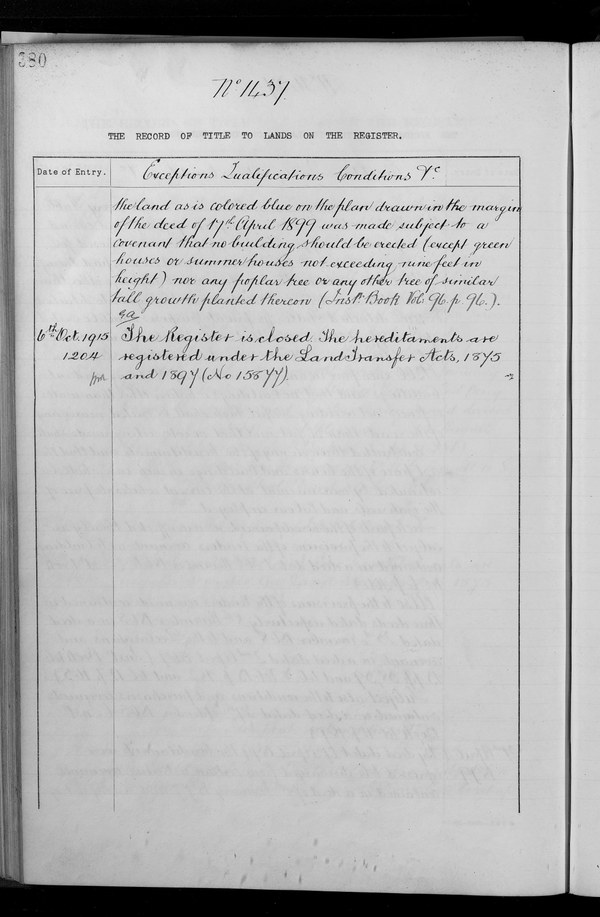 380
No 1437
THE RECORD OF TITLE TO LANDS ON THE REGISTER.
Date of Entry.
Exceptions Qualifications Conditions &c
the land as is colored blue on the plan drawn in the margin
of the deed of 17th April 1899 was made subject to a
covenant that no building should be erected (except green
houses or summer houses not exceeding nine feet in
height) nor any poplar tree or any other tree of similar
tall growth planted thereon (Inst. Book Vol. 96. p 96.).
6th Oct. 1915 The Register is closed. The hereditaments are
1204 registered under the Land Transfer Acts, 1875
and 1897 (No 15877).